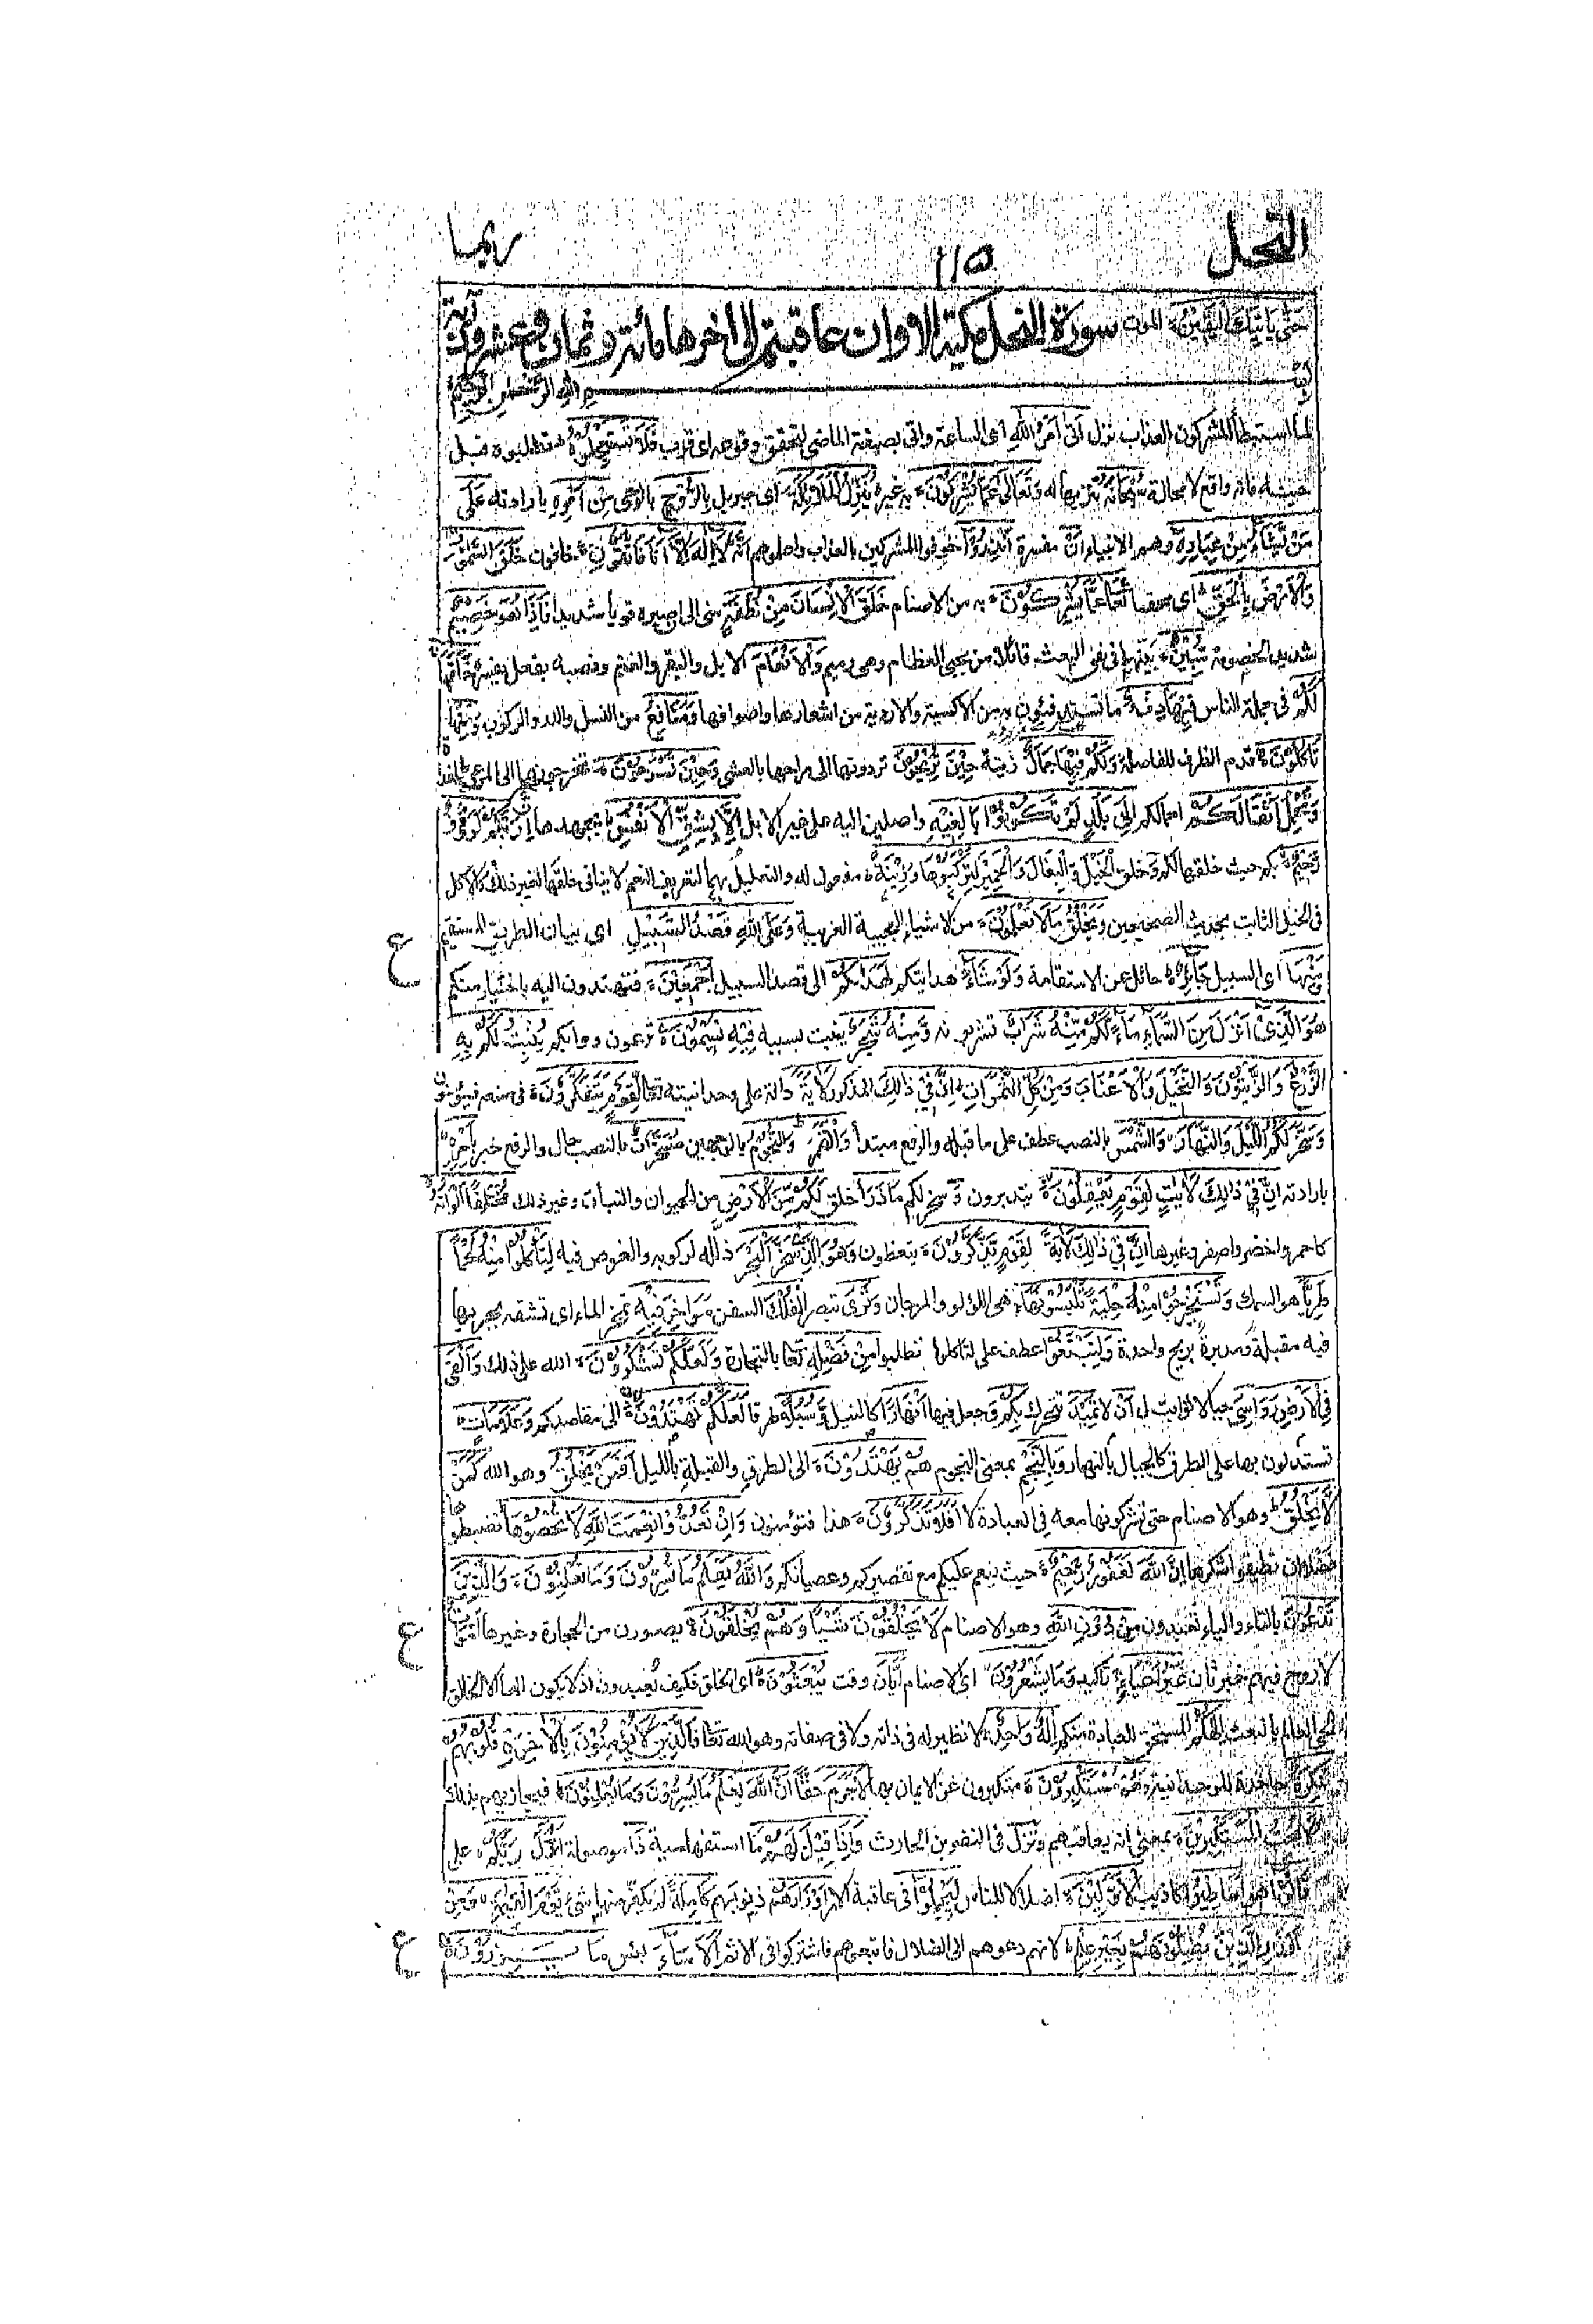 النحل
١١٥
ربما
حَتّٰى يَأْتِيَكَ الْيَقِيْنُ الموت سورة النحل مكية الا وان عاقبتم الى اخرها مائة وثمان وعشرون آية
الله الرحمن الرحيم
لما استبطأ المشركون العذاب نزل اَتٰى اَمْرُ اللهِ اى الساعة واتى بصيغة الماضى لتحقق وقوعه اى قرب فَلَا تَسْتَعْجِلُوْهُ تطلبوه قبل
حينه فانه واقع لا محالة سُبْحٰنَهٗ تنزيها له وَتَعَالٰى عَمَّا يُشْرِكُوْنَ به غيره يُنَزِّلُ الْمَلٰٓئِكَةَ اى جبريل بِالرُّوْحِ بالوحى مِنْ اَمْرِهٖ بارادته عَلٰى
مَنْ يَّشَآءُ مِنْ عِبَادِهٖ وهم الانبياء اَنْ مفسرة اَنْذِرُوْا خوفوا المشركين بالعذاب واعلموهم اَنَّهٗ لَا اِلٰهَ اِلَّا اَنَا فَاتَّقُوْنِ خافون خَلَقَ السَّمٰوٰتِ
وَالْاَرْضَ بِالْحَقِّ اى محقا تَعَالٰى عَمَّا يُشْرِكُوْنَ به من الاصنام خَلَقَ الْاِنْسَانَ مِنْ نُّطْفَةٍ منى الى ان صيره قويا شديدا فَاِذَا هُوَ خَصِيْمٌ
شديد الخصومة مُّبِيْنٌ بينها فى نفى البعث قائلا من يحيى العظام وهى رميم وَالْاَنْعَامَ الابل والبقر والغنم ونصبه بفعل يفسره خَلَقَهَا
لَكُمْ فى جملة الناس فِيْهَا دِفْءٌ ما تستدفئون به من الاكسية والاردية من اشعارها واصوافها وَّمَنَافِعُ من النسل والدر والركوب وَمِنْهَا
تَاْكُلُوْنَ قدم الظرف للفاصلة وَلَكُمْ فِيْهَا جَمَالٌ زينة حِيْنَ تُرِيْحُوْنَ تردونها الى مراحها بالعشى وَحِيْنَ تَسْرَحُوْنَ تخرجونها الى المرعى بالغداة
وَتَحْمِلُ اَثْقَالَكُمْ احمالكم اِلٰى بَلَدٍ لَّمْ تَكُوْنُوْا بٰلِغِيْهِ واصلين اليه على غير الابل اِلَّا بِشِقِّ الْاَنْفُسِ بجهدها اِنَّ رَبَّكُمْ لَرَءُوْفٌ
رَّحِيْمٌ بكم حيث خلقها لكم وَّ خلق الْخَيْلَ وَالْبِغَالَ وَالْحَمِيْرَ لِتَرْكَبُوْهَا وَزِيْنَةً مفعول له والتعليل بهما لتعريف النعم لا ينافى خلقها لغير ذلك كالاكل
فى الخيل الثابت بحديث الصحيحين وَيَخْلُقُ مَا لَا تَعْلَمُوْنَ من الاشياء العجيبة الغريبة وَعَلَى اللهِ قَصْدُ السَّبِيْلِ اى بيان الطريق المستقيم
ع
وَمِنْهَا اى السبيل جَآئِرٌ حائل عن الاستقامة وَلَوْ شَآءَ هدايتكم لَهَدٰىكُمْ الى قصد السبيل اَجْمَعِيْنَ فتهتدون اليه باختيار منكم
هُوَ الَّذِيْٓ اَنْزَلَ مِنَ السَّمَآءِ مَآءً لَّكُمْ مِّنْهُ شَرَابٌ تشربونه وَّمِنْهُ شَجَرٌ ينبت بسببه فِيْهِ تُسِيْمُوْنَ ترعون دوابكم يُنْبِتُ لَكُمْ بِهِ
الزَّرْعَ وَالزَّيْتُوْنَ وَالنَّخِيْلَ وَالْاَعْنَابَ وَمِنْ كُلِّ الثَّمَرٰتِ اِنَّ فِيْ ذٰلِكَ المذكور لَاٰيَةً دالة على وحدانيته تعالى لِّقَوْمٍ يَّتَفَكَّرُوْنَ فى صنعه فيؤمنون
وَسَخَّرَ لَكُمُ الَّيْلَ وَالنَّهَارَ وَالشَّمْسَ بالنصب عطف على ما قبله والرفع مبتدأ وَالْقَمَرَ وَالنُّجُوْمُ بالوجهين مُسَخَّرٰتٌ بالنصب حال والرفع خبر بِاَمْرِهٖ
بارادته اِنَّ فِيْ ذٰلِكَ لَاٰيٰتٍ لِّقَوْمٍ يَّعْقِلُوْنَ يتدبرون وَ سخر لكم مَا ذَرَاَ خلق لَكُمْ فِى الْاَرْضِ من الحيوان والنبات وغير ذلك مُخْتَلِفًا اَلْوَانُهٗ
كاحمر واخضر واصفر وغيرها اِنَّ فِيْ ذٰلِكَ لَاٰيَةً لِّقَوْمٍ يَّذَّكَّرُوْنَ يتعظون وَهُوَ الَّذِيْ سَخَّرَ الْبَحْرَ ذلله لركوبه والغوص فيه لِتَاْكُلُوْا مِنْهُ لَحْمًا
طَرِيًّا هو السمك وَّتَسْتَخْرِجُوْا مِنْهُ حِلْيَةً تَلْبَسُوْنَهَا هى اللؤلؤ والمرجان وَتَرَى تبصر الْفُلْكَ السفن مَوَاخِرَ فِيْهِ تمخر الماء اى تشقه بجريها
فيه مقبلة ومدبرة بريح واحدة وَلِتَبْتَغُوْا عطف على لتاكلوا تطلبوا مِنْ فَضْلِهٖ تعالى بالتجارة وَلَعَلَّكُمْ تَشْكُرُوْنَ الله على ذلك وَاَلْقٰى
فِى الْاَرْضِ رَوَاسِيَ جبالا ثوابت ل اَنْ لا تَمِيْدَ تتحرك بِكُمْ وَ جعل فيها اَنْهٰرًا كالنيل وَّسُبُلًا طرقا لَّعَلَّكُمْ تَهْتَدُوْنَ الى مقاصدكم وَعَلٰمٰتٍ
تستدلون بها على الطرق كالجبال بالنهار وَبِالنَّجْمِ بمعنى النجوم هُمْ يَهْتَدُوْنَ الى الطرق والقبلة بالليل اَفَمَنْ يَّخْلُقُ وهو الله كَمَنْ
لَّا يَخْلُقُ وهو الاصنام حتى تشركونها معه فى العبادة لا اَفَلَا تَذَكَّرُوْنَ هذا فتؤمنون وَاِنْ تَعُدُّوْا نِعْمَتَ اللهِ لَا تُحْصُوْهَا تضبطوها
فضلا ان تطيقوا شكرها اِنَّ اللهَ لَغَفُوْرٌ رَّحِيْمٌ حيث ينعم عليكم مع تقصيركم وعصيانكم وَاللهُ يَعْلَمُ مَا تُسِرُّوْنَ وَمَا تُعْلِنُوْنَ وَالَّذِيْنَ
تَدْعُوْنَ بالتاء والياء تعبدون مِنْ دُوْنِ اللهِ وهو الاصنام لَا يَخْلُقُوْنَ شَيْئًا وَّهُمْ يُخْلَقُوْنَ يصورون من الحجارة وغيرها اَمْوَاتٌ
ع
لا روح فيهم خبر ثان غَيْرُ اَحْيَآءٍ تاكيد وَمَا يَشْعُرُوْنَ اى الاصنام اَيَّانَ وقت يُبْعَثُوْنَ اى الخلق فكيف يعبدون اذ لا يكون الها الا الخالق
الحى العالم بالبعث اِلٰهُكُمْ المستحق للعبادة منكم اِلٰهٌ وَّاحِدٌ لا نظير له فى ذاته ولا فى صفاته وهو الله تعالى فَالَّذِيْنَ لَا يُؤْمِنُوْنَ بِالْاٰخِرَةِ قُلُوْبُهُمْ
مُّنْكِرَةٌ جاحدة للوحدانية وَّهُمْ مُّسْتَكْبِرُوْنَ متكبرون عن الايمان بها لَا جَرَمَ حقا اَنَّ اللهَ يَعْلَمُ مَا يُسِرُّوْنَ وَمَا يُعْلِنُوْنَ فيجازيهم بذلك
لَا يُحِبُّ الْمُسْتَكْبِرِيْنَ بمعنى انه يعاقبهم ونزل فى النضر بن الحارث وَاِذَا قِيْلَ لَهُمْ مَّا استفهامية ذَا موصولة اَنْزَلَ رَبُّكُمْ على
قَالُوْا هو اَسَاطِيْرُ اكاذيب الْاَوَّلِيْنَ اضلالا للناس لِيَحْمِلُوْا فى عاقبة الامر اَوْزَارَهُمْ ذنوبهم كَامِلَةً لم يكفر منها شئ يَّوْمَ الْقِيٰمَةِ وَمِنْ
اَوْزَارِ الَّذِيْنَ يُضِلُّوْنَهُمْ بِغَيْرِ عِلْمٍ لانهم دعوهم الى الضلال فاتبعوهم فاشتركوا فى الاثم اَلَا سَآءَ بئس مَا يَزِرُوْنَ
ع